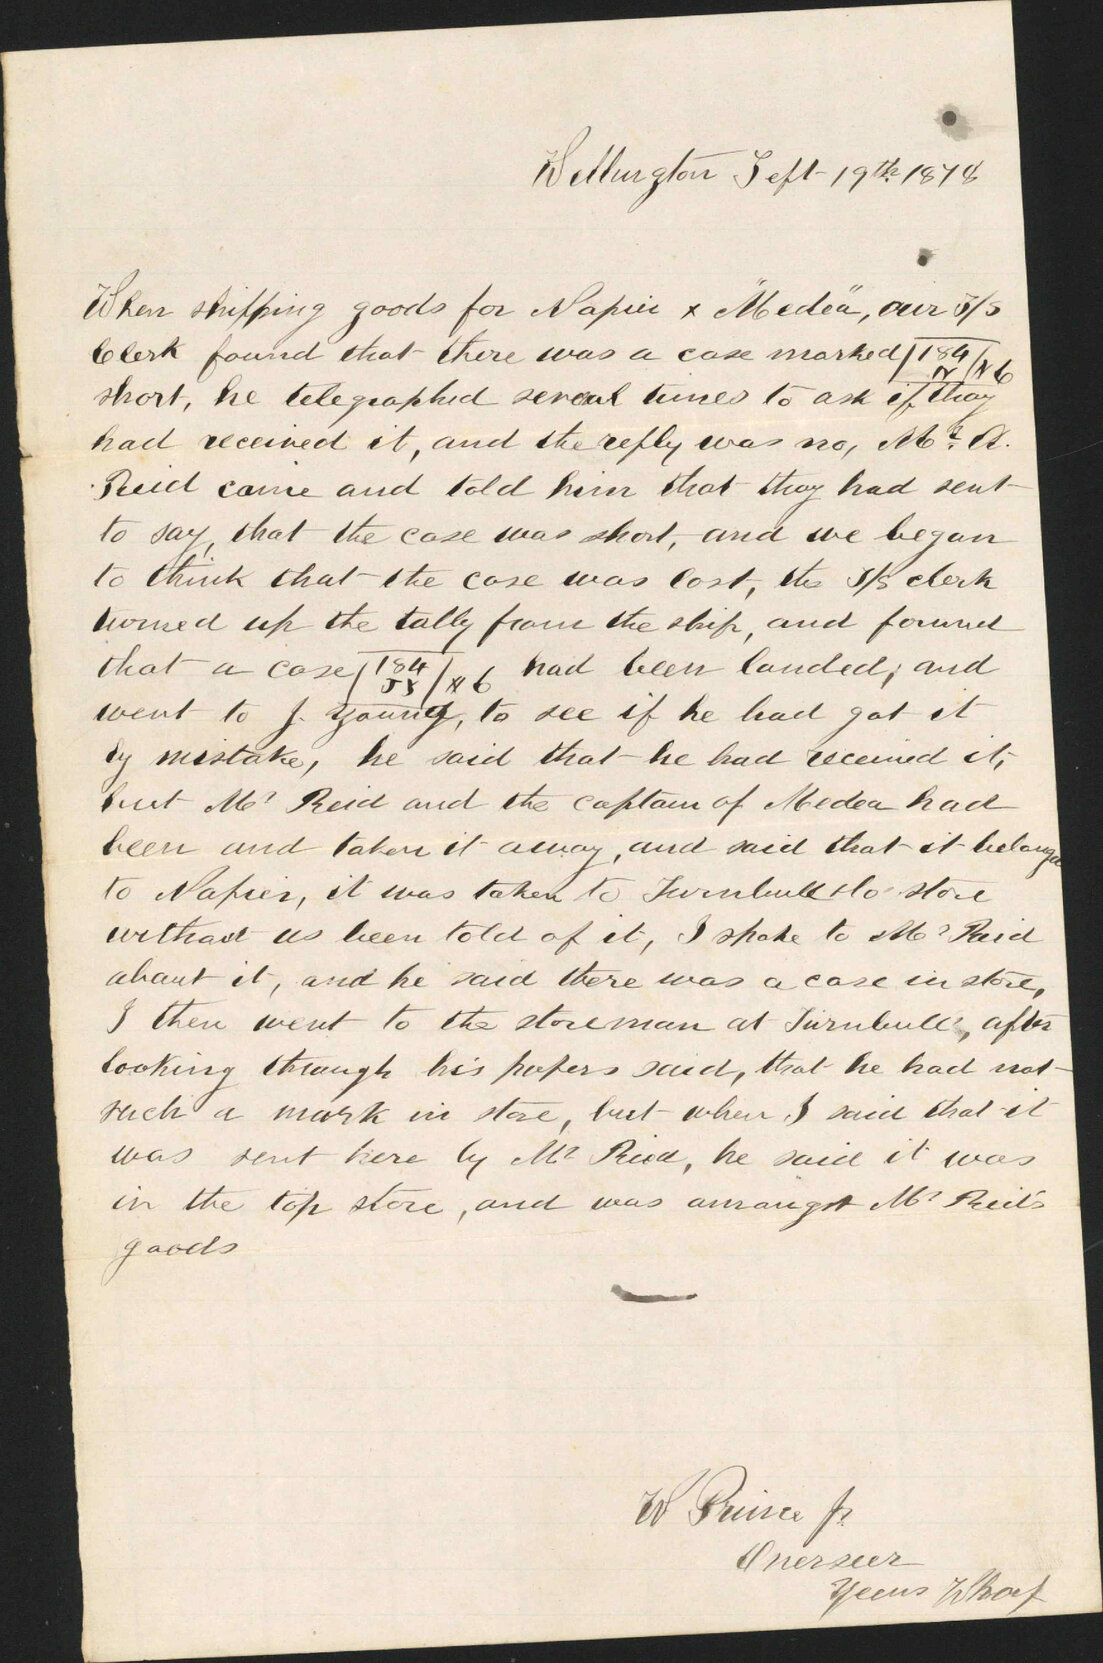 Wellington Sept 19th 1878
When shipping goods for Napier x "Medea", our T/S
Clerk found that there was a case marked 184 N 6
short, he telegraphed several times to ask if they
had received it, and the reply was no, Mr A.
Reid came and told him that they had sent
to say, that the case was short, and we began
to think that the case was lost, the T/S clerk
turned up the tally from the ship, and found
that a case 184 JY 6 had been landed, and
went to J. Young, to see if he had got it
by mistake, he said that he had received it,
but Mr Reid and the captain of Medea had
been and taken it away, and said that it belonged
to Napier, it was taken to Turnbull &Co store
without us been told of it, I spoke to Mr Reid
about it, and he said there was a case in store,
I then went to the storeman at Turnbull, after
looking through his papers said, that he had not
such a mark in store, but when I said that it
was sent here by Mr Reid, he said it was
in the top store, and was amongst Mr Reid's
goods
W Prince Jr
Overseer
Wharf